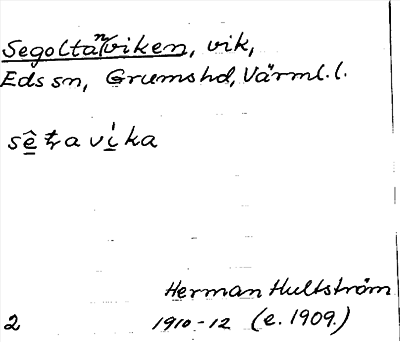 Segoltanviken, vik,
Eds sn, Grums hd, Värml. l.
Herman Hultström
2 1910-12 (e. 1909.)